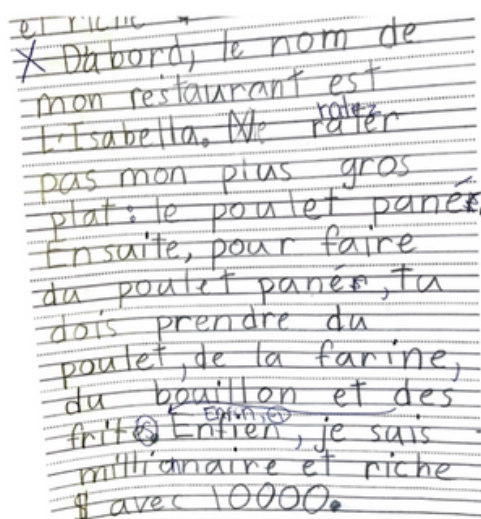 et riche
X Dabord, le nom de
mon restaurant est
L'Isabella. Ne rater
ratez
pas mon plus gros
plat: le poulet pané
Ensuite, pour faire
du poulet pané, tu
dois prendre du
poulet, de la farine,
du bouillon et des
frites
Enfin,
Enfien, je suis
millionnaire et riche
$ avec 10000.